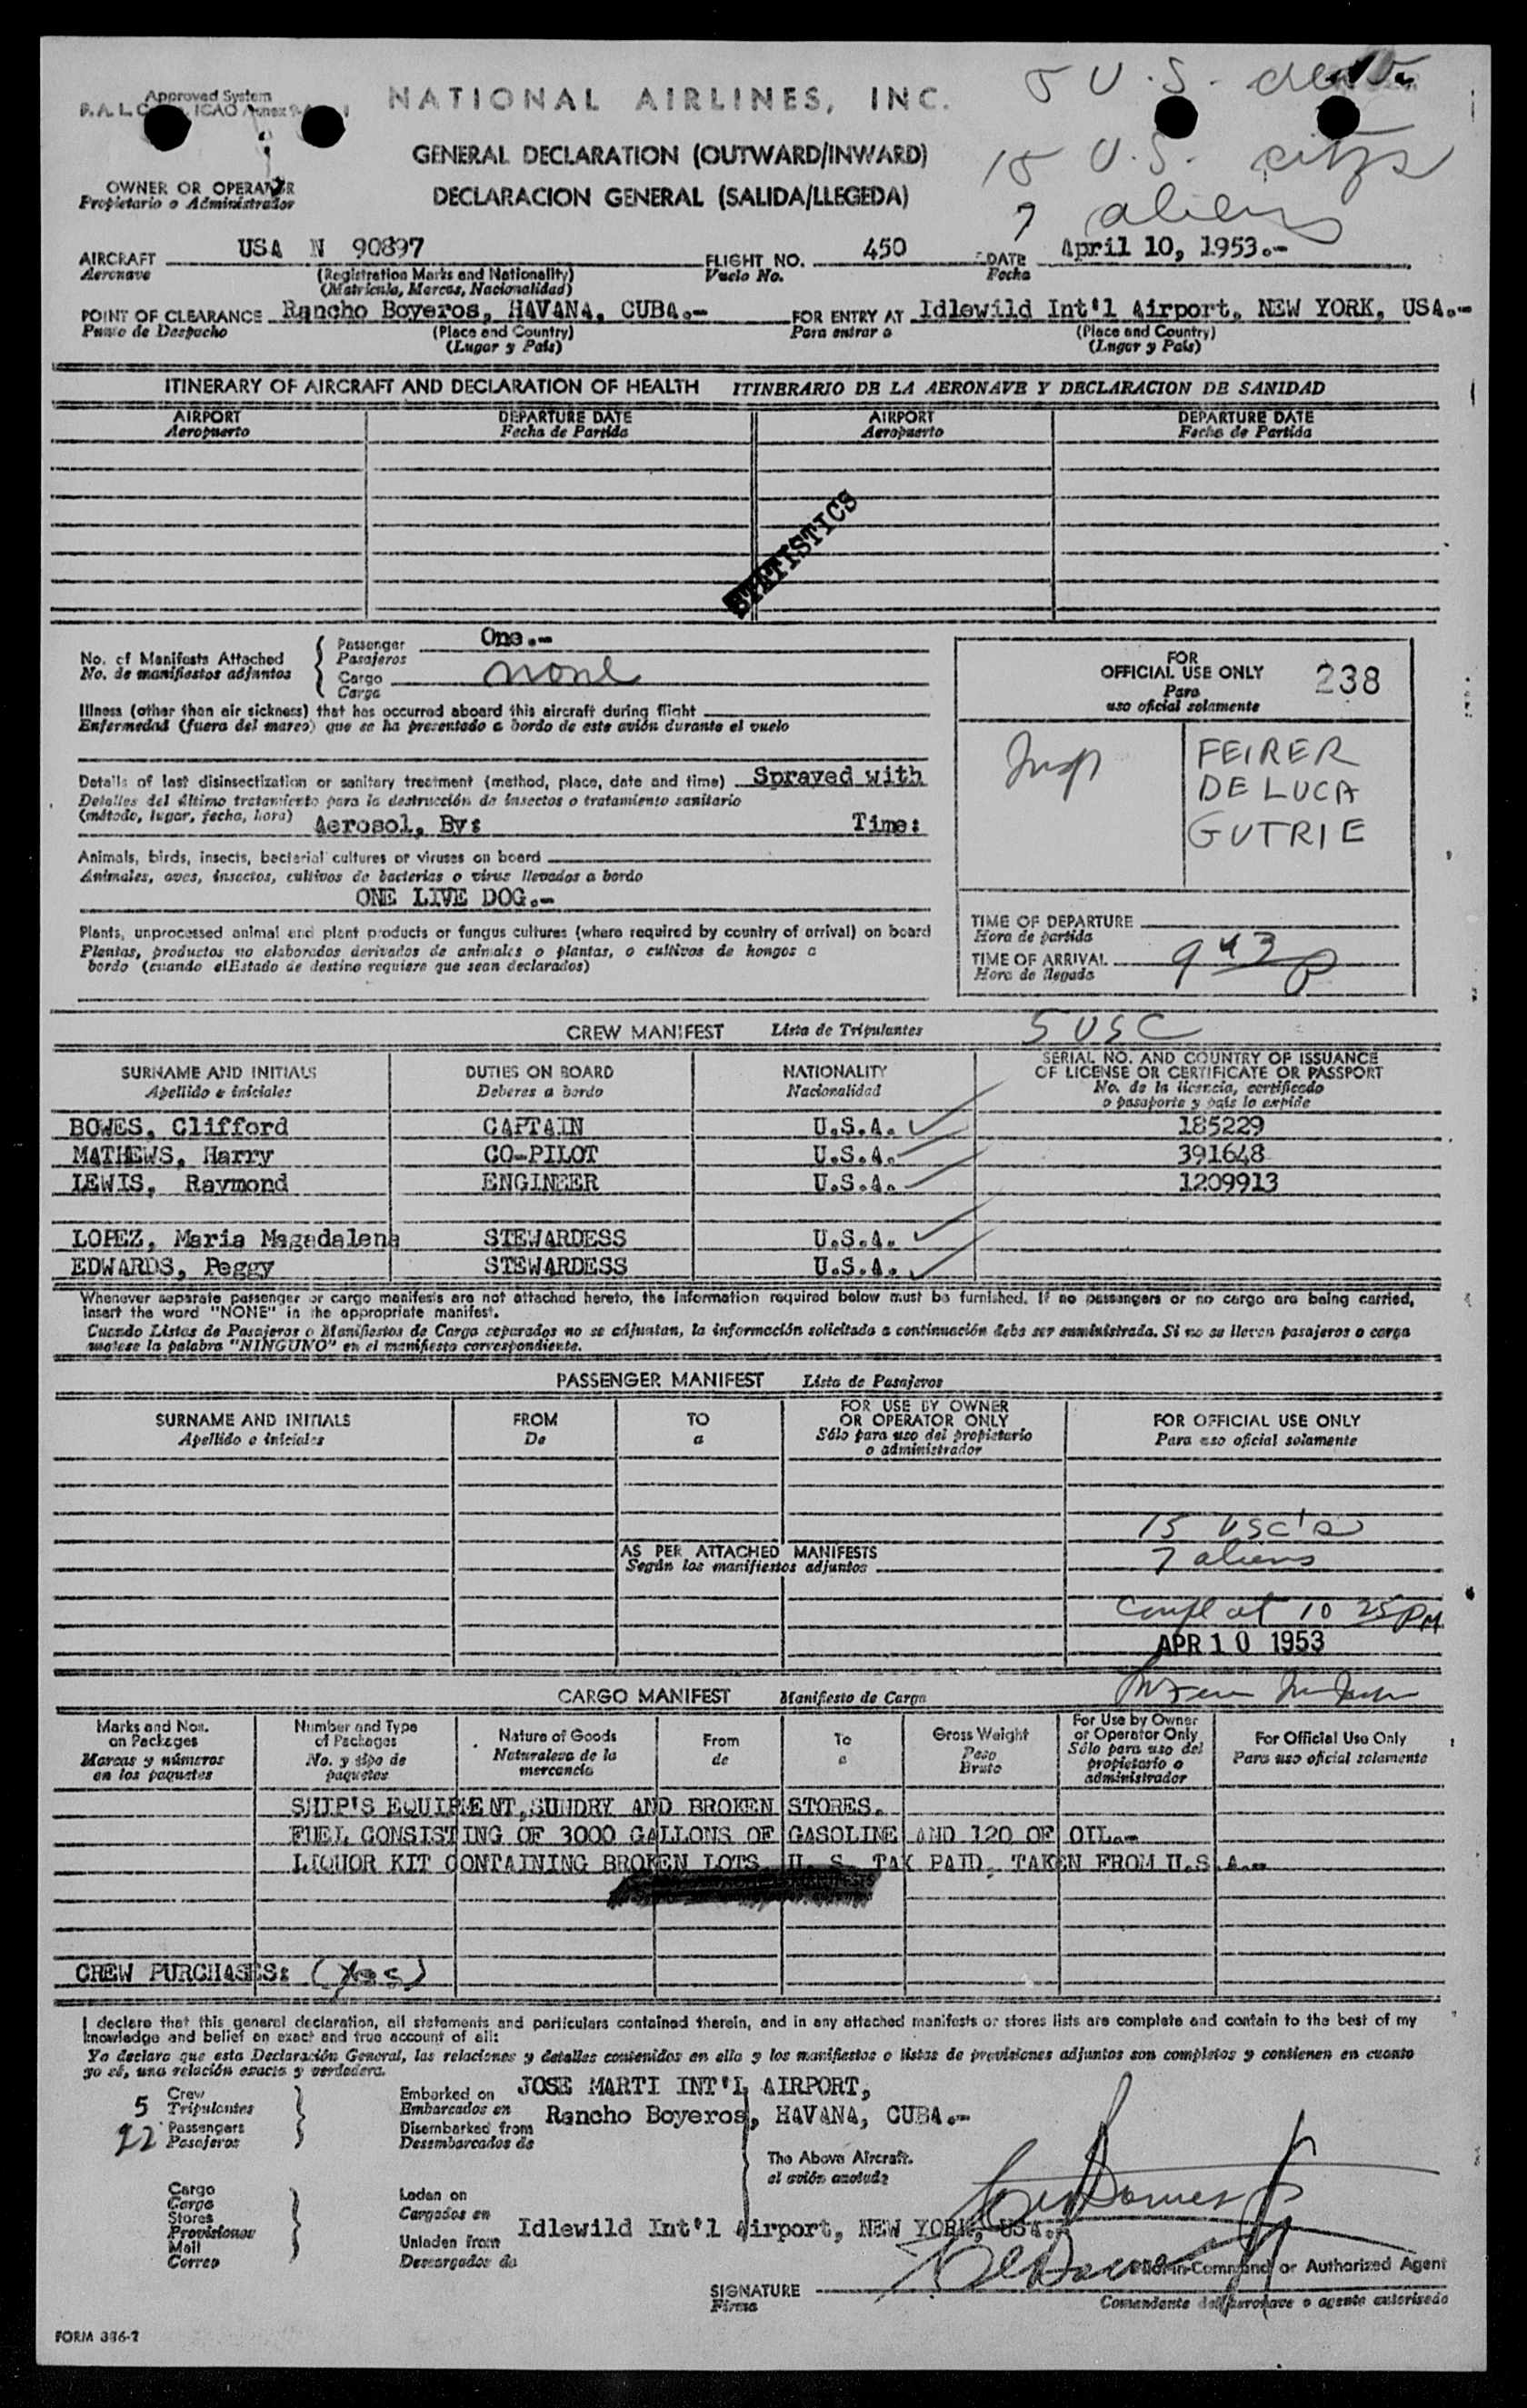 Approved System
NATIONAL AIRLINES, INC.
5 U.S. crew
GENERAL DECLARATION (OUTWARD/INWARD)
15 U.S. citzs
OWNER OR OPERATOR
Propietario o Administrador
DECLARACION GENERAL (SALIDA/LLEGEDA)
7 aliens
AIRCRAFT USA N 90897 FLIGHT NO. 450 DATE April 10, 1953.-
Aeronave (Registration Marks and Nationality) Vuelo No. Fecha
(Matricula, Marcas, Nacionalidad)
POINT OF CLEARANCE Rancho Boyeros, HAVANA, CUBA.- FOR ENTRY AT Idlewild Int'l Airport, NEW YORK, USA.-
Punto de Despacho (Place and Country) Para entrar a (Place and Country)
(Lugar y País) (Lugar y País)
ITINERARY OF AIRCRAFT AND DECLARATION OF HEALTH ITINERARIO DE LA AERONAVE Y DECLARACION DE SANIDAD
AIRPORT DEPARTURE DATE AIRPORT DEPARTURE DATE
Aeropuerto Fecha de Partida Aeropuerto Fecha de Partida
STATISTICS
No. of Manifests Attached
No. de manifiestos adjuntos
Passenger One.-
Pasajeros
Cargo none
Carga
Illness (other than air sickness) that has occurred aboard this aircraft during flight
Enfermedad (fuera del mareo) que se ha presentado a bordo de este avión durante el vuelo
Details of last disinsectization or sanitary treatment (method, place, date and time) Sprayed with
Detalles del último tratamiento para la destrucción de insectos o tratamiento sanitario
(método, lugar, fecha, hora) Aerosol, By: Time:
Animals, birds, insects, bacterial cultures or viruses on board
Animales, aves, insectos, cultivos de bacterias o virus llevados a bordo
ONE LIVE DOG.-
Plants, unprocessed animal and plant products or fungus cultures (where required by country of arrival) on board
Plantas, productos no elaborados derivados de animales o plantas, o cultivos de hongos a
bordo (cuando elEstado de destino requiere que sean declarados)
FOR
OFFICIAL USE ONLY 238
Para
uso oficial solamente
Insp
FEIRER
DE LUCA
GUTRIE
TIME OF DEPARTURE
Hora de partida
TIME OF ARRIVAL 9 43 p
Hora de llegada
CREW MANIFEST Lista de Tripulantes 5 USC
SURNAME AND INITIALS DUTIES ON BOARD NATIONALITY SERIAL NO. AND COUNTRY OF ISSUANCE
OF LICENSE OR CERTIFICATE OR PASSPORT
Apellido e iniciales Deberes a bordo Nacionalidad No. de la licencia, certificado
o pasaporte y país lo expide
BOWES, Clifford CAPTAIN U.S.A. 185229
MATHEWS, Harry CO-PILOT U.S.A. 391648
LEWIS, Raymond ENGINEER U.S.A. 1209913
LOPEZ, Maria Magadalena STEWARDESS U.S.A.
EDWARDS, Peggy STEWARDESS U.S.A.
Whenever separate passenger or cargo manifests are not attached hereto, the information required below must be furnished. If no passengers or no cargo are being carried,
insert the word "NONE" in the appropriate manifest.
Cuando Listas de Pasajeros o Manifiestos de Carga separados no se adjuntan, la información solicitada a continuación debe ser suministrada. Si no se llevan pasajeros o carga
anotese la palabra "NINGUNO" en el manifiesto correspondiente.
PASSENGER MANIFEST Lista de Pasajeros
SURNAME AND INITIALS FROM TO FOR USE BY OWNER
OR OPERATOR ONLY FOR OFFICIAL USE ONLY
Apellido e iniciales De a Sólo para uso del propietario
o administrador Para uso oficial solamente
15 USC's
AS PER ATTACHED MANIFESTS 7 aliens
Según los manifiestos adjuntos
Compl at 10 25 PM
APR 10 1953
CARGO MANIFEST Manifiesto de Carga
Marks and Nos.
on Packages
Marcas y números
en los paquetes
Number and Type
of Packages
No. y tipo de
paquetes
Nature of Goods
Naturaleva de la
mercancía
From
de
To
a
Gross Weight
Peso
Bruto
For Use by Owner
or Operator Only
Sólo para uso del
propietario o
administrador
For Official Use Only
Para uso oficial solamente
SHIP'S EQUIPMENT, SUNDRY AND BROKEN STORES.
FUEL CONSISTING OF 3000 GALLONS OF GASOLINE AND 120 OF OIL.-
LIQUOR KIT CONTAINING BROKEN LOTS U. S. TAX PAID, TAKEN FROM U.S.A.-
CREW PURCHASES: (Yes)
I declare that this general declaration, all statements and particulars contained therein, and in any attached manifests or stores lists are complete and contain to the best of my
knowledge and belief an exact and true account of all:
Yo declaro que esta Declaración General, las relaciones y detalles contenidos en ella y los manifiestos o listas de provisiones adjuntos son completos y contienen en cuanto
yo sé, una relación exacta y verdadera.
5 Crew
Tripulantes
22 Passengers
Pasajeros
Embarked on JOSE MARTI INT'L AIRPORT,
Embarcados en Rancho Boyeros, HAVANA, CUBA.-
Disembarked from
Desembarcados de
The Above Aircraft.
el avión anotado
Cargo
Carga
Stores
Provisiones
Mail
Correo
Laden on
Cargados en
Unladen from Idlewild Int'l Airport, NEW YORK, USA.-
Descargados de
Pilot-in-Command or Authorized Agent
SIGNATURE
Firma
Comandante del aeronave o agente autorizado
FORM 386-2